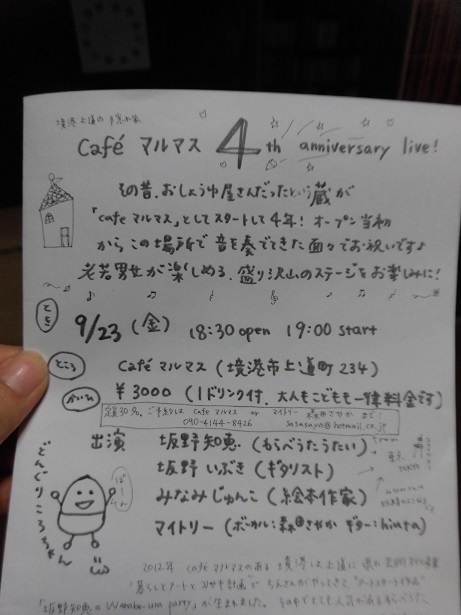 境港上道の隠れ家
Café マルマス 4th anniversary live!
その昔、おしょうゆ屋さんだったという蔵が
「cafe マルマス」としてスタートして4年! オープン当初
からこの場所で音を奏でてきた面々でお祝いです♪
老若男女が楽しめる、盛り沢山のステージをお楽しみに!
とき 9/23(金) 18:30 open 19:00 start
ところ Café マルマス(境港市上道町234)
¥3000(1ドリンク付、大人もこどもも一律料金です)
定員30名。ご予約は Cafe マルマス or マイトリー 森田さやか まで!
090-4144-8426 sasasayn@hotmail.co.jp
出演 坂野知恵(わらべうたうたい)
坂野いぶき(ギタリスト)
みなみじゅんこ(絵本作家)
マイトリー(ボーカル:森田さやか ギター:hiuta)
from 東京
どんぐりころちゃん
ぽーん
2012年 café マルマスのある境港は上道に
「暮らしとアート と
「坂野知恵のWarabe-uta party」が生まれました。